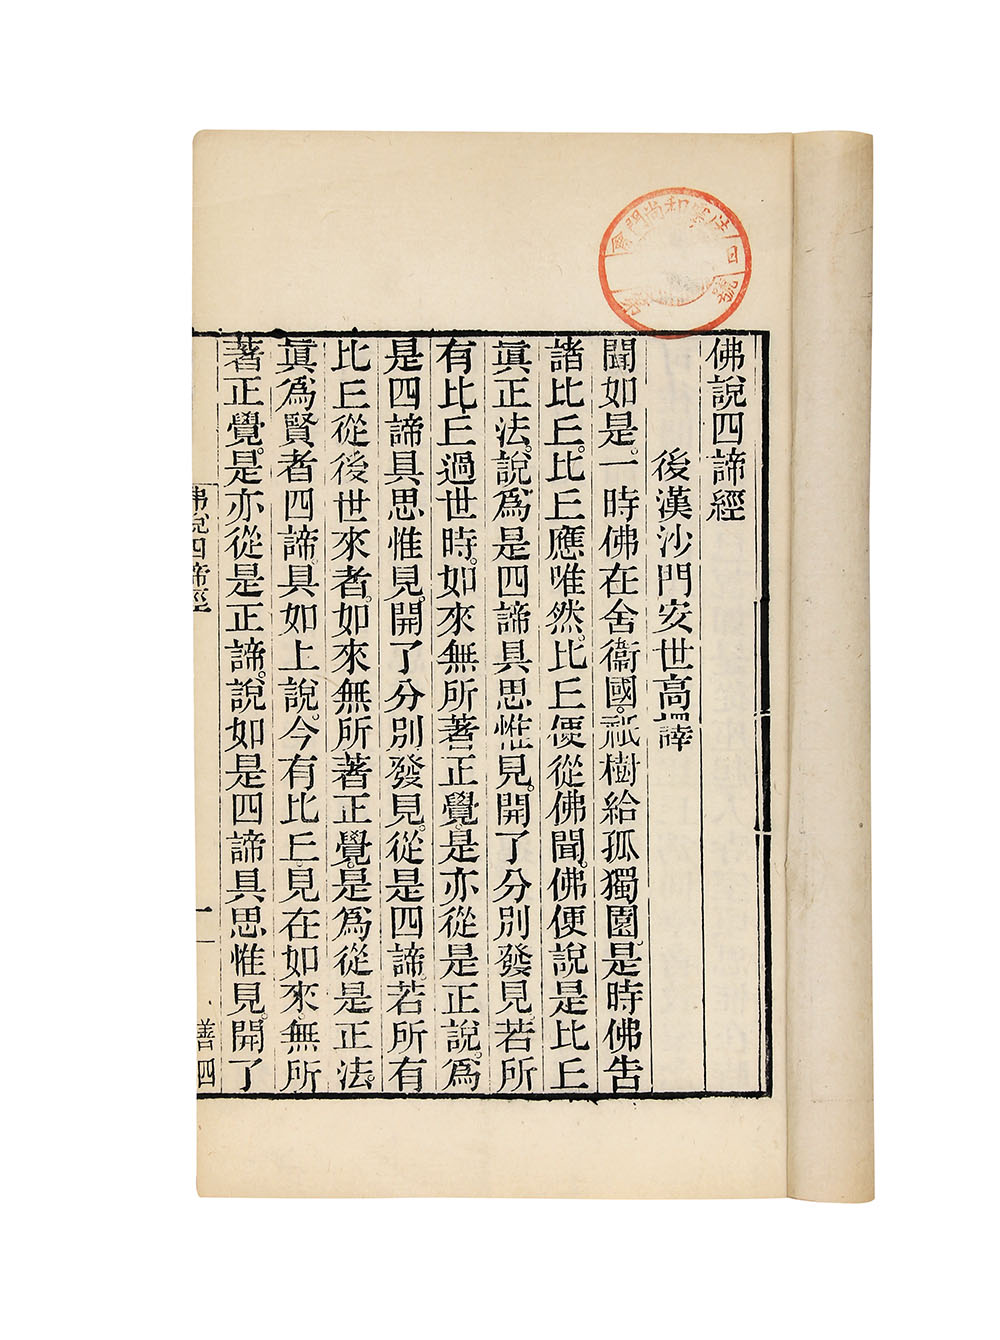 佛說四諦經
後漢沙門安世高譯
聞如是。一時佛在舍衞國。祇樹給孤獨園。是時佛告
諸比丘。比丘應唯然。比丘便從佛聞。佛便說是比丘
眞正法。說爲是四諦具思惟見。開了分別發見。若所
有比丘過世時。如來無所著正覺。是亦從是正說。爲
是四諦具思惟見。開了分別發見。從是四諦。若所有
比丘從後世來者。如來無所著正覺。是爲從是正法。
眞爲賢者四諦。具如上說。今有比丘。見在如來。無所
著正覺。是亦從是正諦。說如是四諦具思惟見。開了
佛說四諦經 一 善四